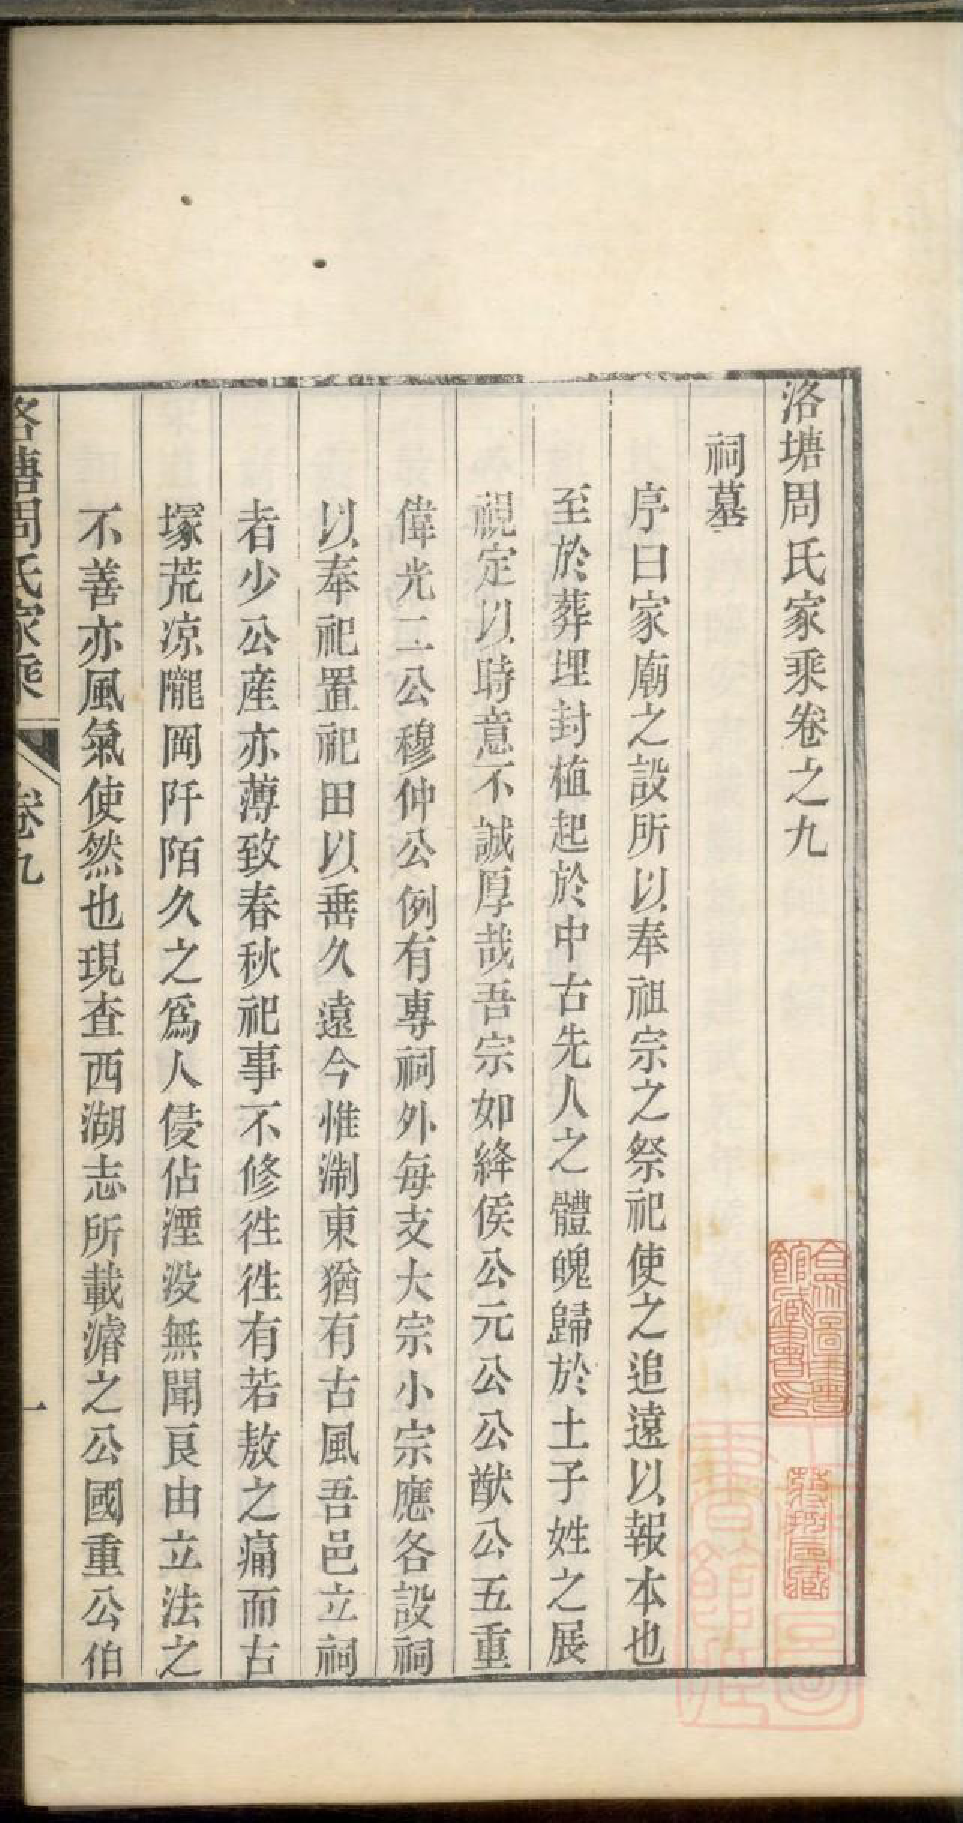 洛塘周氏家乘卷之九
祠墓
序曰家廟之設所以奉祖宗之祭祀使之追遠以報本也
至於葬埋封植起於中古先人之體魄歸於土子姓之展
視定以時意不誠厚哉吾宗如絳侯公元公公猷公五重
偉光二公穆仲公例有專祠外每支大宗小宗應各設祠
以奉祀置祀田以垂久遠今惟浙東猶有古風吾邑立祠
者少公産亦薄致春秋祀事不修徃徃有若敖之痛而古
塚荒凉隴岡阡陌久之爲人侵佔湮没無聞良由立法之
不善亦風氣使然也現查西湖志所載濬之公國重公伯
洛塘周氏家乘
卷九
一